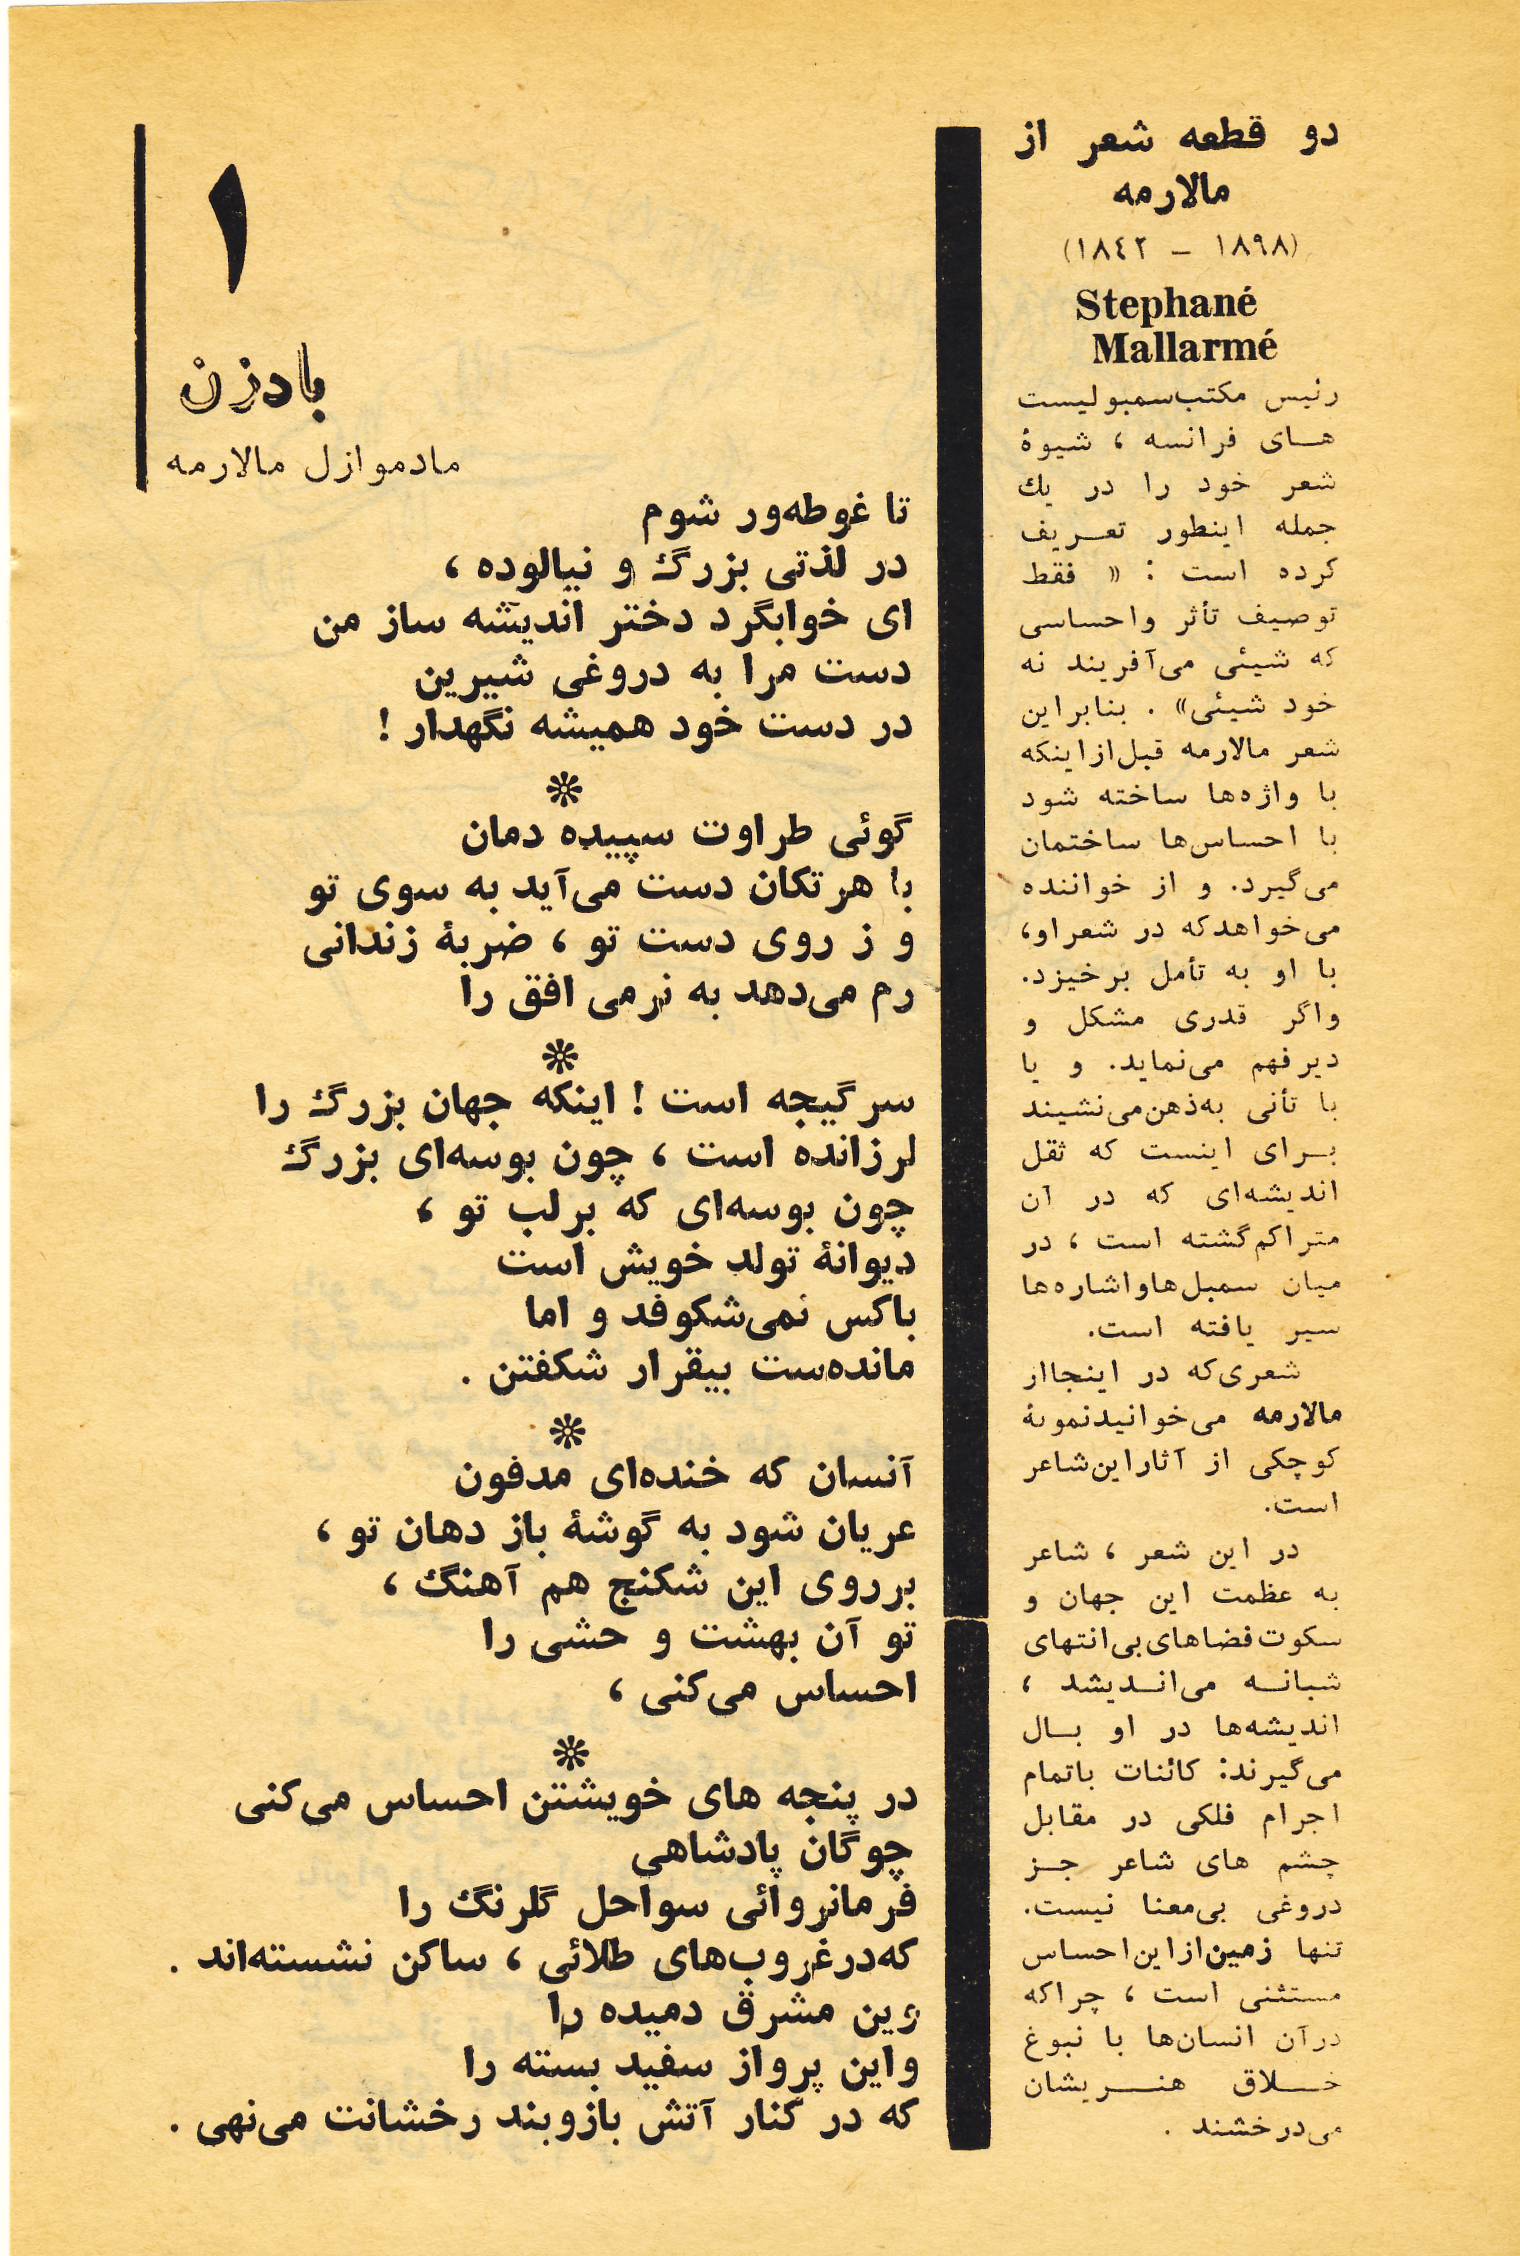 دو قطعه شعر از
مالارمه
(۱۸۹۸ – ۱۸٤۲)
Stephané
Mallarmé
رئیس مکتب‌سمبولیست
هـای فرانسه ، شیوهٔ
شعر خود را در یك
جمله اینطور تعـریف
کرده است : « فقط
توصیف تأثر واحساسی
که شیئی می‌آفریند نه
خود شیئی» . بنابراین
شعر مالارمه قبل‌ازاینکه
با واژه‌ها ساخته شود
با احساس‌ها ساختمان
می‌گیرد. و از خواننده
می‌خواهدکه در شعراو،
با او به تأمل برخیزد.
واگر قدری مشکل و
دیرفهم می‌نماید. و یا
با تأنی به‌ذهن‌می‌نشیند
بـرای اینست که ثقل
اندیشه‌ای که در آن
متراکم‌گشته است ، در
میان سمبل‌هاواشاره‌ها
سیر یافته است.
شعری‌که در اینجااز
مالارمه می‌خوانیدنمونهٔ
کوچکی از آثاراین‌شاعر
است.
در این شعر ، شاعر
به عظمت این جهان و
سکوت‌فضاهای‌بی‌انتهای
شبانـه می‌انـدیشد ،
اندیشه‌ها در او بـال
می‌گیرند: کائنات باتمام
اجرام فلکی در مقابل
چشم های شاعر جـز
دروغی بی‌معنا نیست.
تنها زمین‌ازاین‌احساس
مستثنی است ، چراکه
درآن انسان‌ها با نبوغ
خـلاق هنـریشان
می‌درخشند .
۱
بادزن
مادموازل مالارمه
تا غوطه‌ور شوم
در لذتی بزرگ و نیالوده ،
ای خوابگرد دختر اندیشه ساز من
دست مرا به دروغی شیرین
در دست خود همیشه نگهدار !
❊
گوئی طراوت سپیده دمان
با هرتکان دست می‌آید به سوی تو
و ز روی دست تو ، ضربهٔ زندانی
رم می‌دهد به نرمی افق را
❊
سرگیجه است ! اینکه جهان بزرگ را
لرزانده است ، چون بوسه‌ای بزرگ
چون بوسه‌ای که برلب تو ،
دیوانهٔ تولد خویش است
باکس نمی‌شکوفد و اما
مانده‌ست بیقرار شکفتن .
❊
آنسان که خنده‌ای مدفون
عریان شود به گوشهٔ باز دهان تو ،
برروی این شکنج هم آهنگ ،
تو آن بهشت و حشی را
احساس می‌کنی ،
❊
در پنجه های خویشتن احساس می‌کنی
چوگان پادشاهی
فرمانروائی سواحل گلرنگ را
که‌درغروب‌های طلائی ، ساکن نشسته‌اند .
وین مشرق دمیده را
واین پرواز سفید بسته را
که در کنار آتش بازوبند رخشانت می‌نهی .